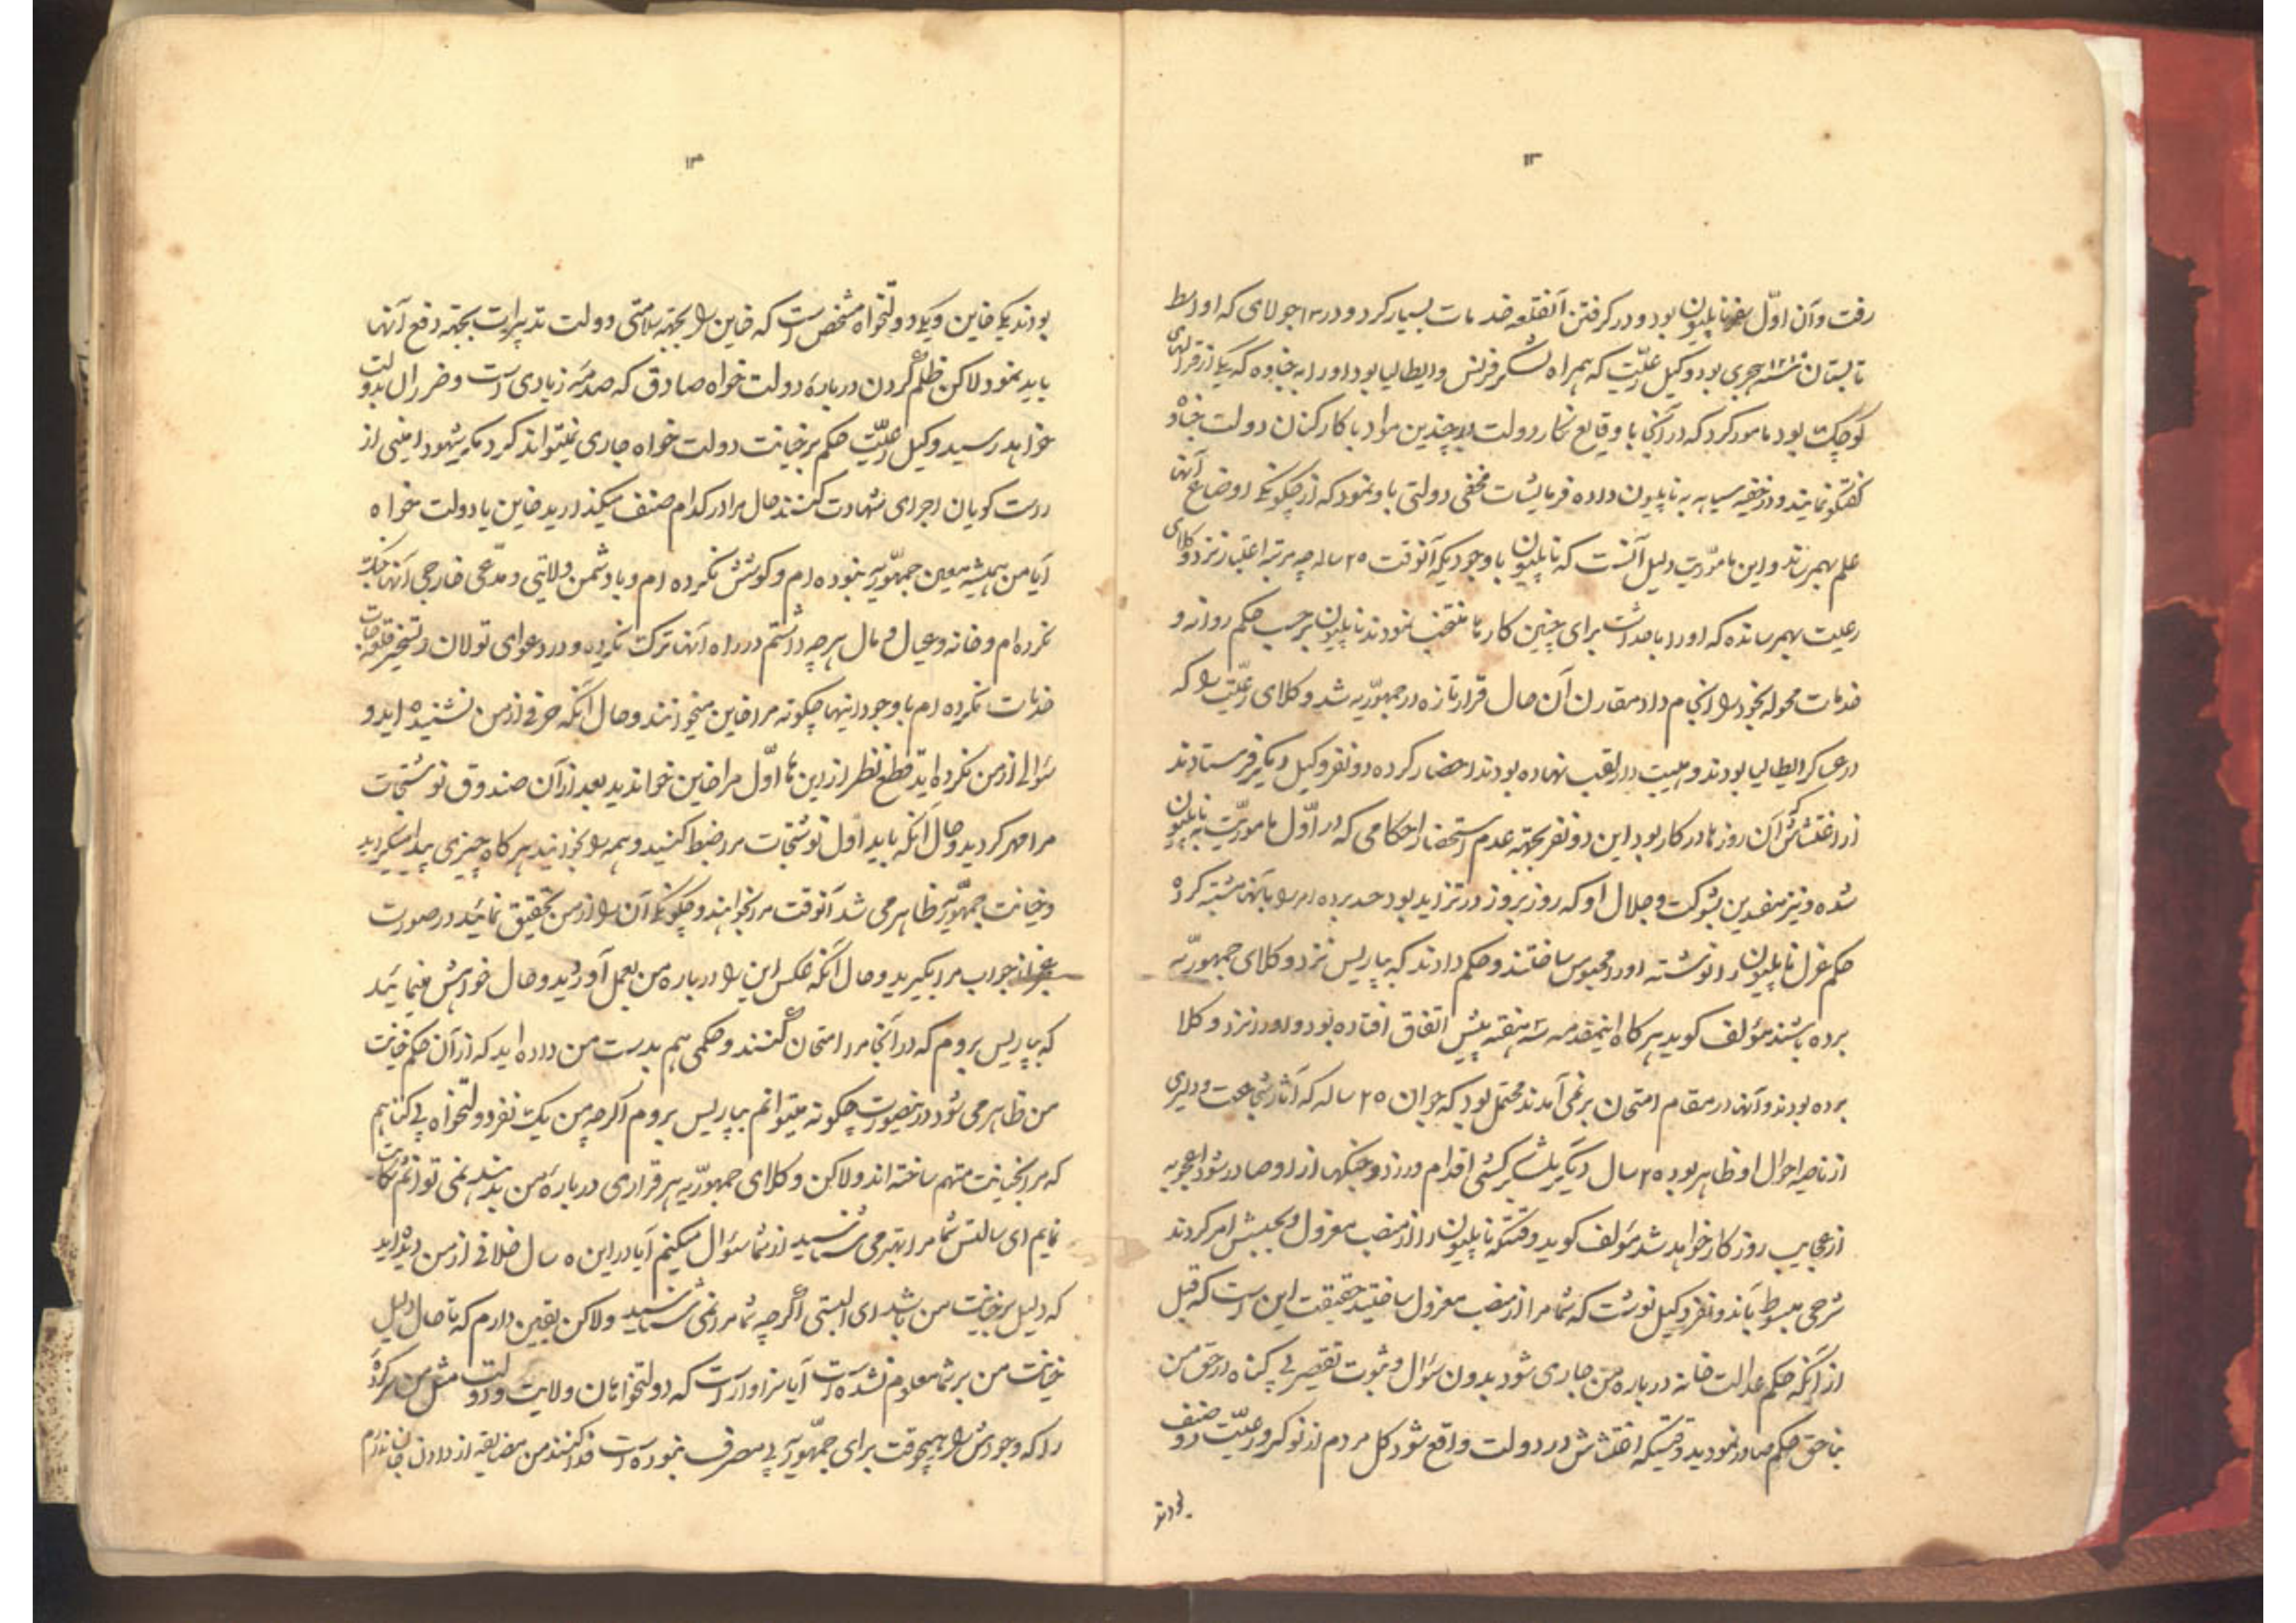 ١٢
رفت و آن اوّل سفر ناپلیون بود و در گرفتن آنقلعه خدمات بسیار کرد و در ١٣ جولای که اواسط
تابستان سنه ١٢١٠ هجری بود وکیل رعیّت که همراه لشکر فرنس و ایطالیا بود او را به جناوه که یکی از قرالهای
کوچک بود مامور کرد که در آنجا با وقایع نگار دولت در چندین مواد با کارکنان دولت جناوه
گفتگو نمایند و در خفیه سیاهه به ناپلیون داده فرمایشات مخفی دولتی باو نمود که از چگونگی اوضاع آنها
علم بهمرساند و این ماموریّت دلیل آنست که ناپلیون با وجودیکه آنوقت ٢٥ ساله چه مرتبه اعتبار نزد وکلای
رعیت بهمرسانده که او را با صداقت برای چنین کارها منتخب نمودند ناپلیون برحسب حکم روانه و
خدمات محوله بخود را انجام داد مقارن آن حال قرار تازه در جمهوریّه شد و وکلای رعیّت را که
در عساکر ایطالیا بودند و هیبت دار لقب نهاده بودند احضار کرده دو نفر وکیل دیگر فرستادند
از اغتشاش که آن روزها در کار بود این دو نفر بجهة عدم استحضار احکامی که در اوّل ماموریّت به ناپلیون
شده و نیز مفسدین بشوکت و جلال او که روز بروز در تزاید بود حسد برده امر را بآنها مشتبه کرده
حکم عزل ناپلیون را نوشته او را محبوس ساختند و حکم دادند که بپاریس نزد وکلای جمهوریّه
برده باشند مؤلف گوید هر گاه اینمقدمه سه هفته پیش اتفاق افتاده بود و او را نزد وکلا
برده بودند و آنها در مقام امتحان بر نمی آمدند محتمل بود که جوان ٢٥ ساله که آثار شجاعت و دلیری
از ناصیه احوال او ظاهر بود ٢٥ سال دیگر بلشکرکشی اقدام ورزد و جنگها از او صادر شود اعجوبه
از عجایب روزگار خواهد شد مؤلف گوید وقتیکه ناپلیون را از منصب معزول و بحبسش امر کردند
شرحی مبسوط بآندو نفر وکیل نوشت که شما مرا از منصب معزول ساختید حقیقت این است که قبل
از آنکه حکم عدالت خانه درباره من جاری شود بدون سؤال و ثبوت تقصیر بی گناه در حق من
بناحق حکم صادر نمودید وقتیکه اغتشاش در دولت واقع شود کل مردم از نوکر و رعیّت دو صنف
بودند
١٣
بودند یکی خاین و یکی دولتخواه مشخص است که خاین را بجهة سلامتی دولت تدبیرات بجهة دفع آنها
باید نمود لاکن ظلم کردن درباره دولت خواه صادق که صدمه زیادی است و ضرر ال بدولت
خواهد رسید وکیل رعیّت حکم بر خیانت دولت خواه جاری نمیتواند کرد مگر شهود امینی از
راست گویان اجرای شهادت کنند حال مرا در کدام صنف میگذارید خاین یا دولت خواه
آیا من همیشه معین جمهوریّه نبوده ام و کوشش نکرده ام و با دشمن ولایتی و مدّعی خارجی آنها جنگ
نکرده ام و خانه و عیال و مال هر چه داشتم در راه آنها ترک نکرده و در دعوای تولان و تسخیر قلعه جات
خدمات نکرده ام با وجود اینها چگونه مرا خاین میخوانند و حال آنکه حرفی از من نشنیده اید و
سؤالی از من نکرده اید قطع نظر از این ها اوّل مرا خاین خواندید بعد از آن صندوق نوشتجات
مرا مهر کردید و حال آنکه باید اول نوشتجات مرا ضبط کنید و همه را بخوانید هر گاه چیزی پیدا میکردید
و خیانت جمهوریّه ظاهر می شد آنوقت مرا بخواهند و چگونگی آن را از من تحقیق نمائید در صورت
عجز از جواب مرا بگیرید و حال آنکه عکس این را درباره من بعمل آوردید و حال خواهش مینمائید
که بپاریس بروم که در آنجا مرا امتحان کنند و حکمی هم بدست من داده اید که از آن حکم خیانت
من ظاهر می شود در اینصورت چگونه میتوانم بپاریس بروم اگر چه من یک نفر دولتخواه بی گناهم
که مرا بخیانت متهم ساخته اند ولاکن وکلای جمهوریّه هر قراری درباره من بدهند نمی توانم شکایت
نمایم ای سالتس شما مرا بهتر می شناسید از شما سؤال میکنم آیا در این ٥ سال خلافی از من دیده اید
که دلیل بر خیانت من باشد ای البتی اگر چه شما مرا نمی شناسید ولاکن یقین دارم که تا حال دلیل
خیانت من بر شما معلوم نشده است آیا سزاوار است که دولتخواهان ولایت و دولت مثل من سرکرده
را که وجودش را هیچوقت برای جمهوریّه بی مصرف ننموده است فدا کنند من مضایقه از دادن جان ندارم